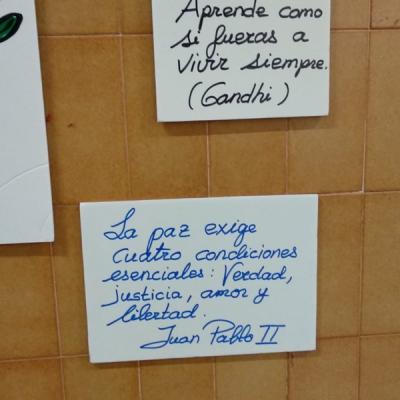 Aprende como
si fueras a
vivir siempre.
(Gandhi)
La paz exige
cuatro condiciones
esenciales: Verdad,
justicia, amor y
libertad.
Juan Pablo II